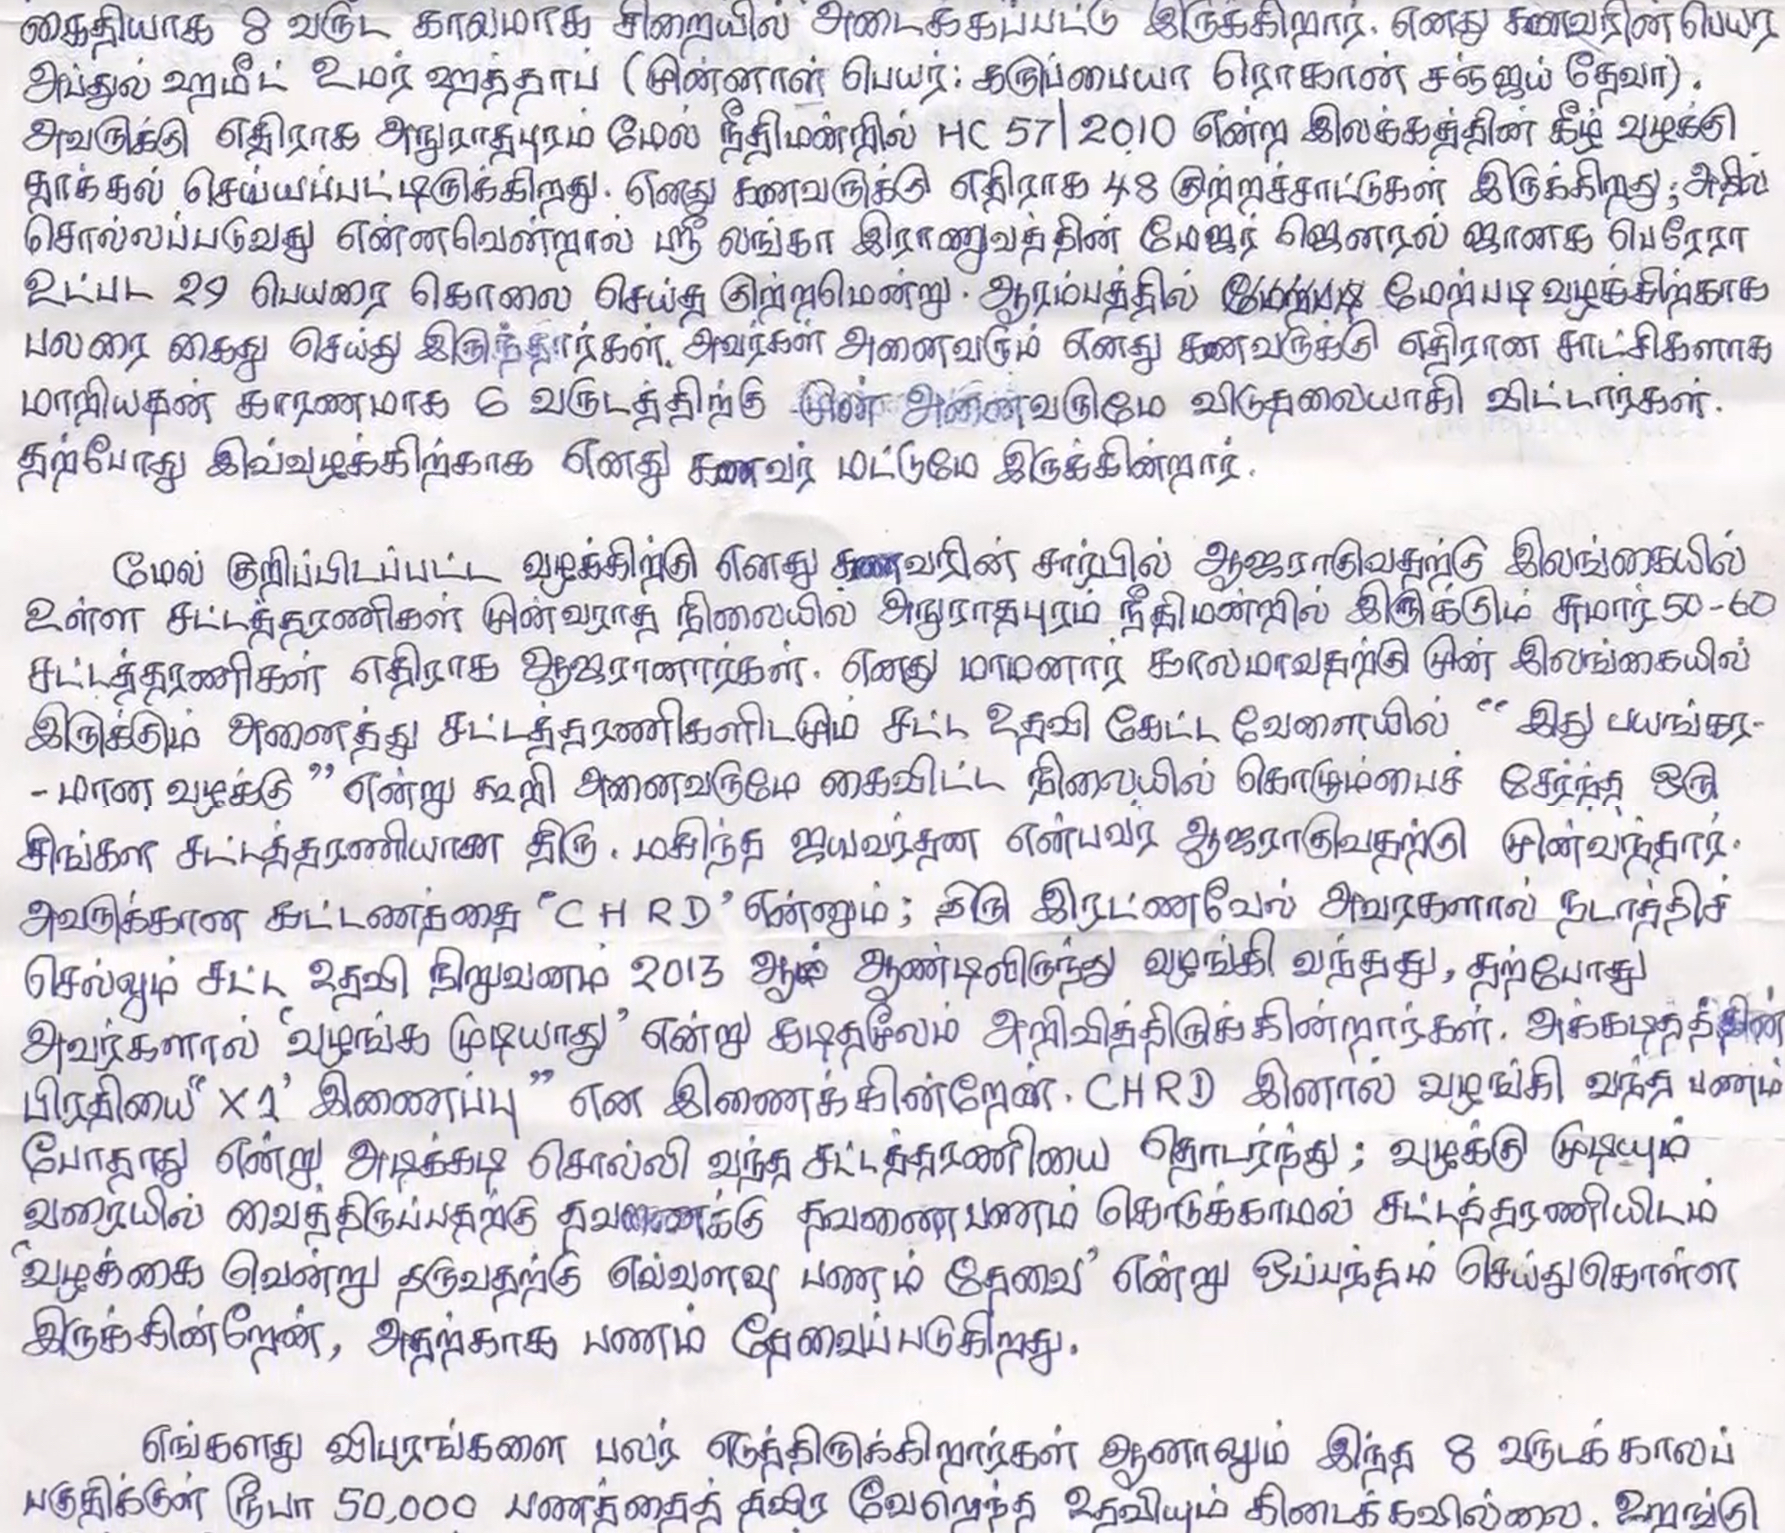 கைதியாக 8 வருட காலமாக சிறையில் அடைக்கப்பட்டு இருக்கிறார். எனது கணவரின் பெயர்
அப்துல் ஹமீட் உமர் ஹத்தாப் (முன்னாள் பெயர்: கருப்பையா ரொகான் சஞ்ஜய் தேவா).
அவருக்கு எதிராக அநுராதபுரம் மேல் நீதிமன்றில் HC 57/2010 என்ற இலக்கத்தின் கீழ் வழக்கு
தாக்கல் செய்யப்பட்டிருக்கிறது. எனது கணவருக்கு எதிராக 48 குற்றச்சாட்டுகள் இருக்கிறது; அதில்
சொல்லப்படுவது என்னவென்றால் ஸ்ரீ லங்கா இராணுவத்தின் மேஜர் ஜெனரல் ஜானக பெரேரா
உட்பட 29 பெயரை கொலை செய்த குற்றமென்று. ஆரம்பத்தில் மேற்படி வழக்கிற்காக
பலரை கைது செய்து இருந்தார்கள். அவர்கள் அனைவரும் எனது கணவருக்கு எதிரான சாட்சிகளாக
மாறியதன் காரணமாக 6 வருடத்திற்கு முன் அனைவருமே விடுதலையாகி விட்டார்கள்.
தற்போது இவ்வழக்கிற்காக எனது கணவர் மட்டுமே இருக்கின்றார்.
மேல் குறிப்பிடப்பட்ட வழக்கிற்கு எனது கணவரின் சார்பில் ஆஜராகுவதற்கு இலங்கையில்
உள்ள சட்டத்தரணிகள் முன்வராத நிலையில் அநுராதபுரம் நீதிமன்றில் இருக்கும் சுமார் 50-60
சட்டத்தரணிகள் எதிராக ஆஜரானார்கள். எனது மாமனார் காலமாவதற்கு முன் இலங்கையில்
இருக்கும் அனைத்து சட்டத்தரணிகளிடமும் சட்ட உதவி கேட்ட வேளையில் “ இது பயங்கர-
-மான வழக்கு ” என்று கூறி அனைவருமே கைவிட்ட நிலையில் கொழும்பைச் சேர்ந்த ஒரு
சிங்கள சட்டத்தரணியான திரு. மகிந்த ஜயவர்தன என்பவர் ஆஜராகுவதற்கு முன்வந்தார்.
அவருக்கான கட்டணத்தை ‘CHRD’ என்னும்; திரு இரட்ணவேல் அவரகளால் நடாத்திச்
செல்லும் சட்ட உதவி நிறுவனம் 2013 ஆம் ஆண்டிலிருந்து வழங்கி வந்தது, தற்போது
அவர்களால் ‘வழங்க முடியாது’ என்று கடிதமூலம் அறிவித்திருக்கின்றார்கள். அக்கடிதத்தின்
பிரதியை “X1’ இணைப்பு ” என இணைக்கின்றேன். CHRD இனால் வழங்கி வந்த பணம்
போதாது என்று அடிக்கடி சொல்லி வந்த சட்டத்தரணியை தொடர்ந்து; வழக்கு முடியும்
வரையில் வைத்திருப்பதற்கு தவணைக்கு தவணை பணம் கொடுக்காமல் சட்டத்தரணியிடம்
‘வழக்கை வென்று தருவதற்கு எவ்வளவு பணம் தேவை’ என்று ஒப்பந்தம் செய்துகொள்ள
இருக்கின்றேன், அதற்காக பணம் தேவைப்படுகிறது.
எங்களது விபரங்களை பலர் எடுத்திருக்கிறார்கள் ஆனாலும் இந்த 8 வருடக் காலப்
பகுதிக்குள் ரூபா 50,000 பணத்தைத் தவிர வேறெந்த உதவியும் கிடைக்கவில்லை. உறங்கு